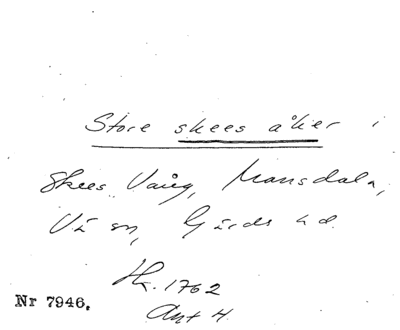 Store skees åker i
Skees Vång, Mansdala,
Vä sn, Gärds hd.
Hk. 1762
Akt 4.
Nr 7946.